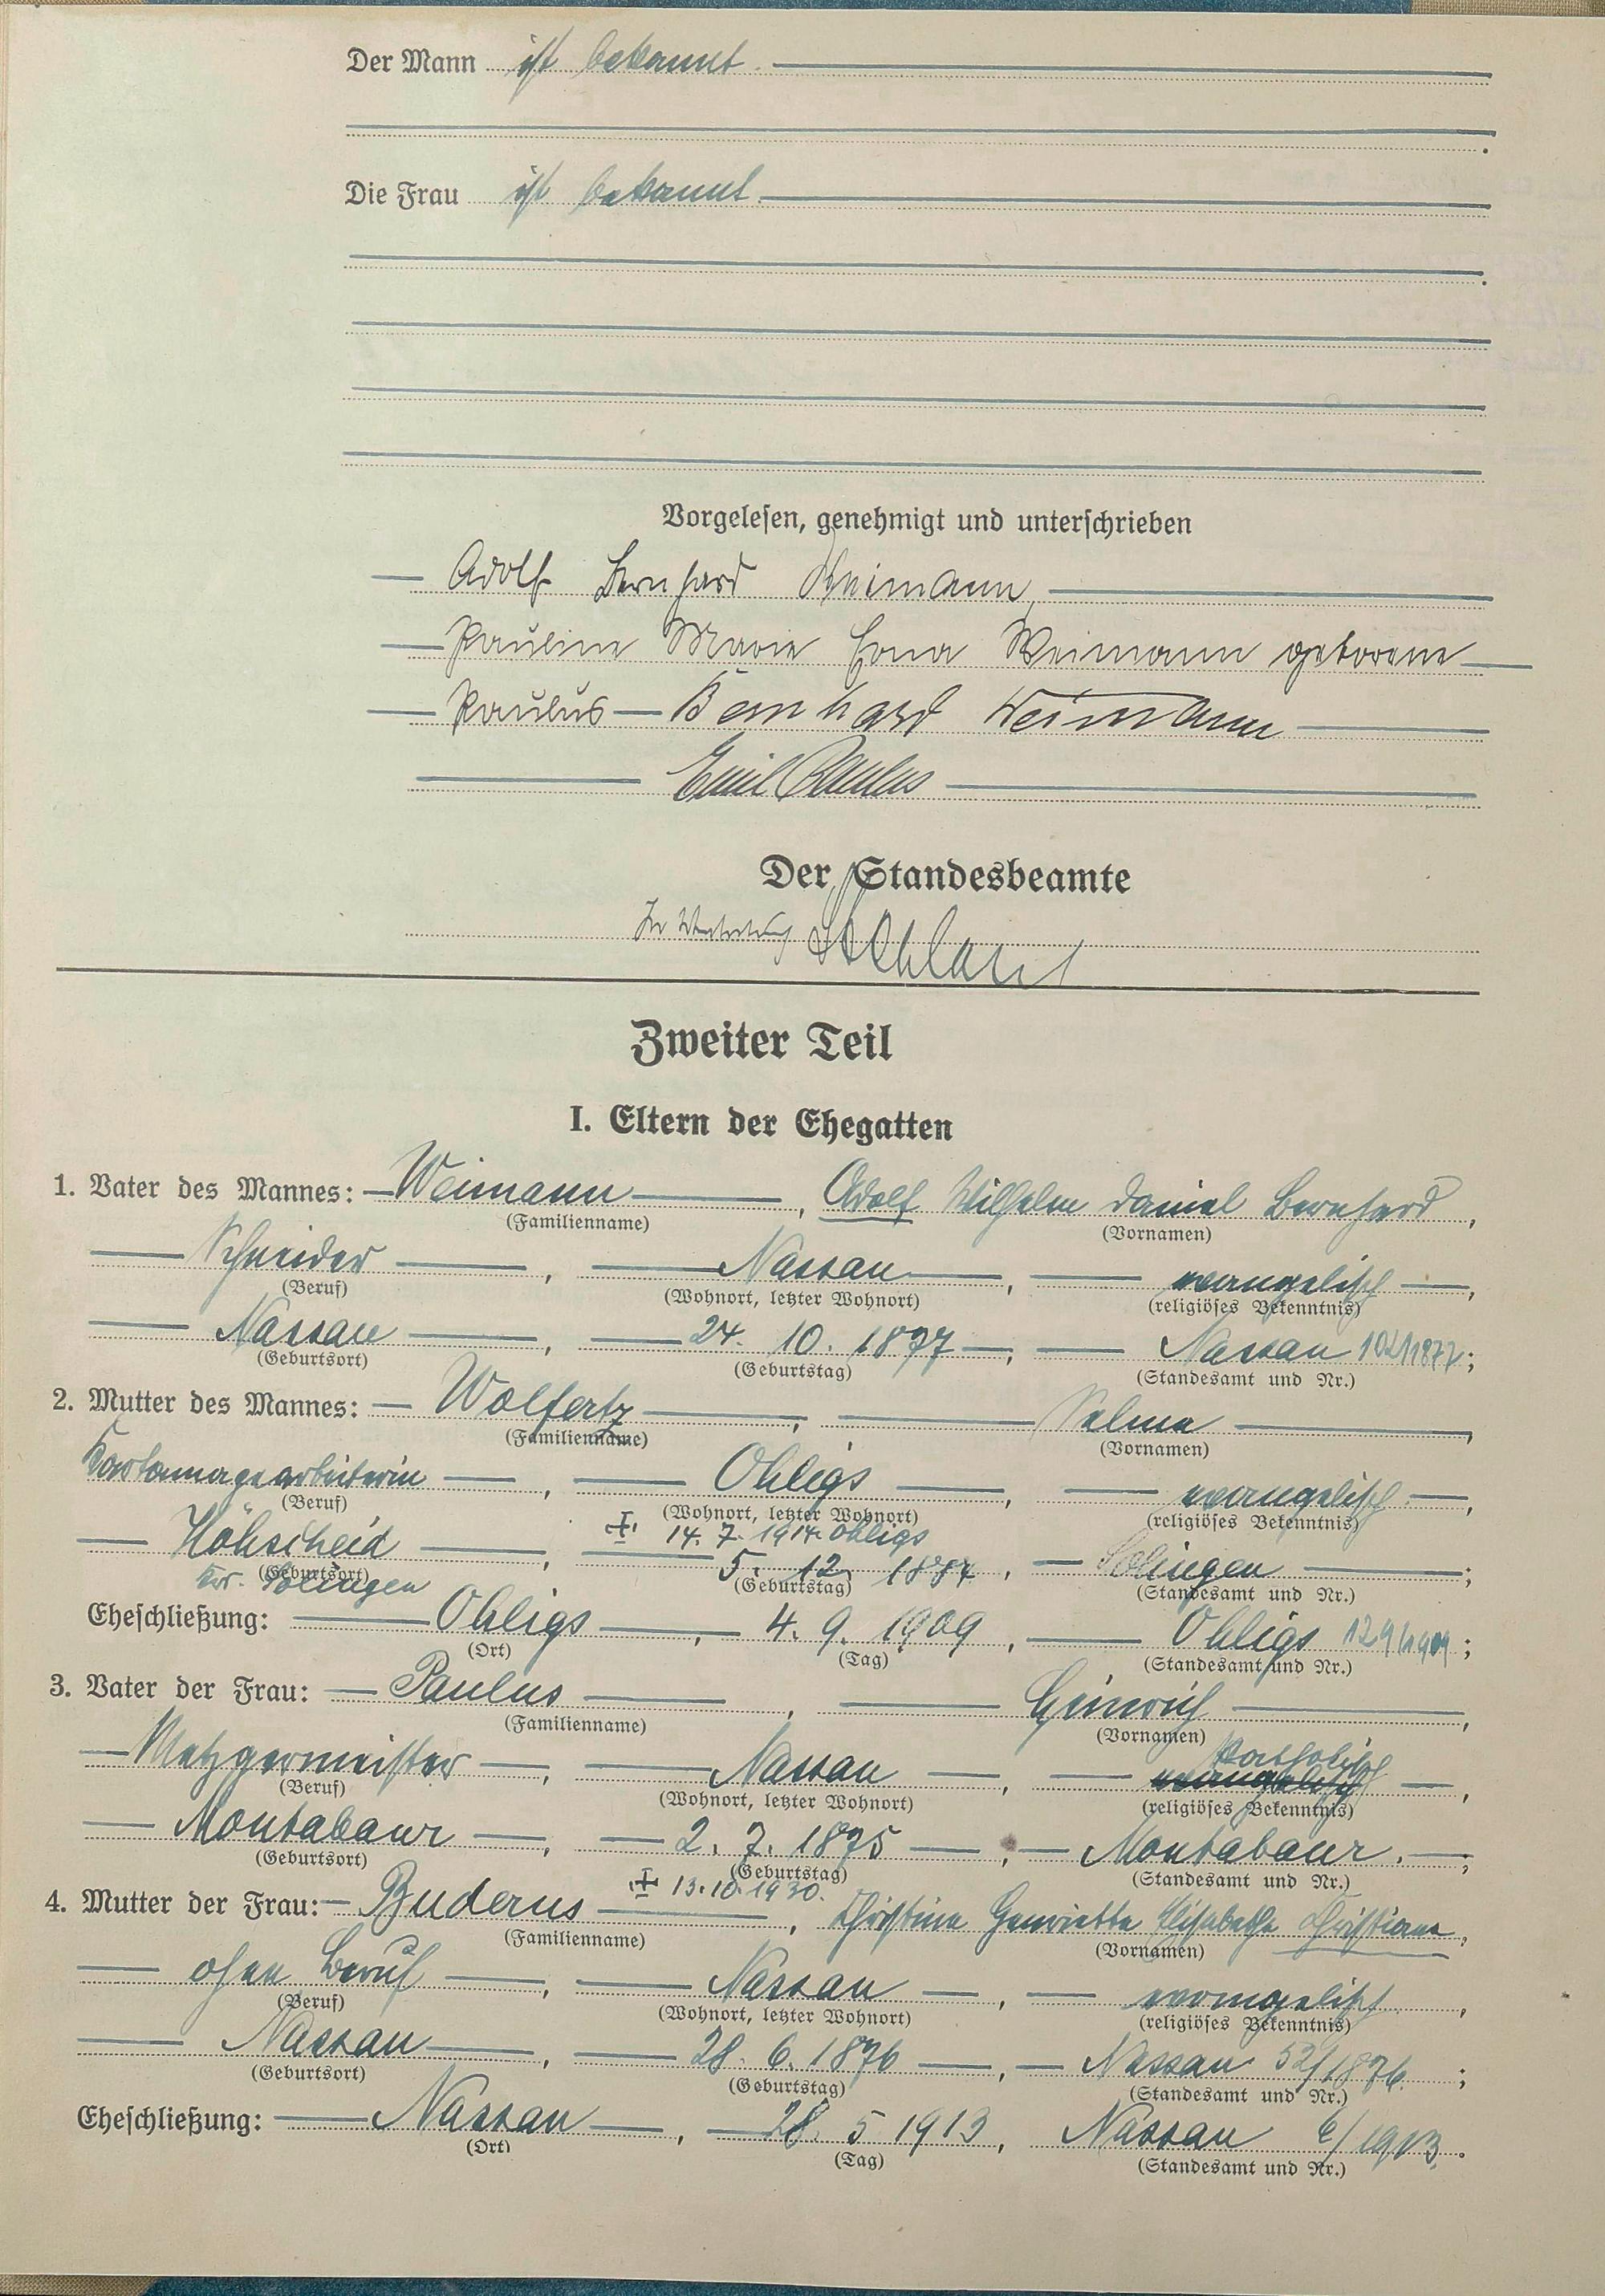 Der Mann ist bekannt.
Die Frau ist bekannt.
Vorgelesen, genehmigt und unterschrieben
Adolf Bernhard Weimann
Pauline Marie Erna Weimann geborene
Paulus Bernhard Weimann
Emil Paulus
Der Standesbeamte
In Vertretung
Zweiter Teil
I. Eltern der Ehegatten
1. Vater des Mannes: Weimann, Adolf Wilhelm Daniel Bernhard,
(Familienname) (Vornamen)
Schneider, Nassau, evangelisch,
(Beruf) (Wohnort, letzter Wohnort) (religiöses Bekenntnis)
Nassau, 24. 10. 1877, Nassau 102/1877;
(Geburtsort) (Geburtstag) (Standesamt und Nr.)
2. Mutter des Mannes: Wolfertz, Selma,
(Familienname) (Vornamen)
Kartonnagearbeiterin, Ohligs, evangelisch,
(Beruf) (Wohnort, letzter Wohnort) (religiöses Bekenntnis)
14. 7. 1914 Ohligs
Höhscheid, 5. 12. 1884, Solingen;
(Geburtsort) (Geburtstag) (Standesamt und Nr.)
Kr. Solingen
Eheschließung: Ohligs, 4. 9. 1909, Ohligs 129/1909;
(Ort) (Tag) (Standesamt und Nr.)
3. Vater der Frau: Paulus, Heinrich,
(Familienname) (Vornamen)
katholisch
Metzgermeister, Nassau, evangelisch,
(Beruf) (Wohnort, letzter Wohnort) (religiöses Bekenntnis)
Montabaur, 2. 7. 1875, Montabaur.;
(Geburtsort) (Geburtstag) (Standesamt und Nr.)
13. 10. 1930.
4. Mutter der Frau: Buderus, Christine Henriette Elisabethe Christiane,
(Familienname) (Vornamen)
ohne Beruf, Nassau, evangelisch,
(Beruf) (Wohnort, letzter Wohnort) (religiöses Bekenntnis)
Nassau, 28. 6. 1876, Nassau 52/1876.;
(Geburtsort) (Geburtstag) (Standesamt und Nr.)
Eheschließung: Nassau, 28. 5 1913, Nassau 6/1913.
(Ort) (Tag) (Standesamt und Nr.)